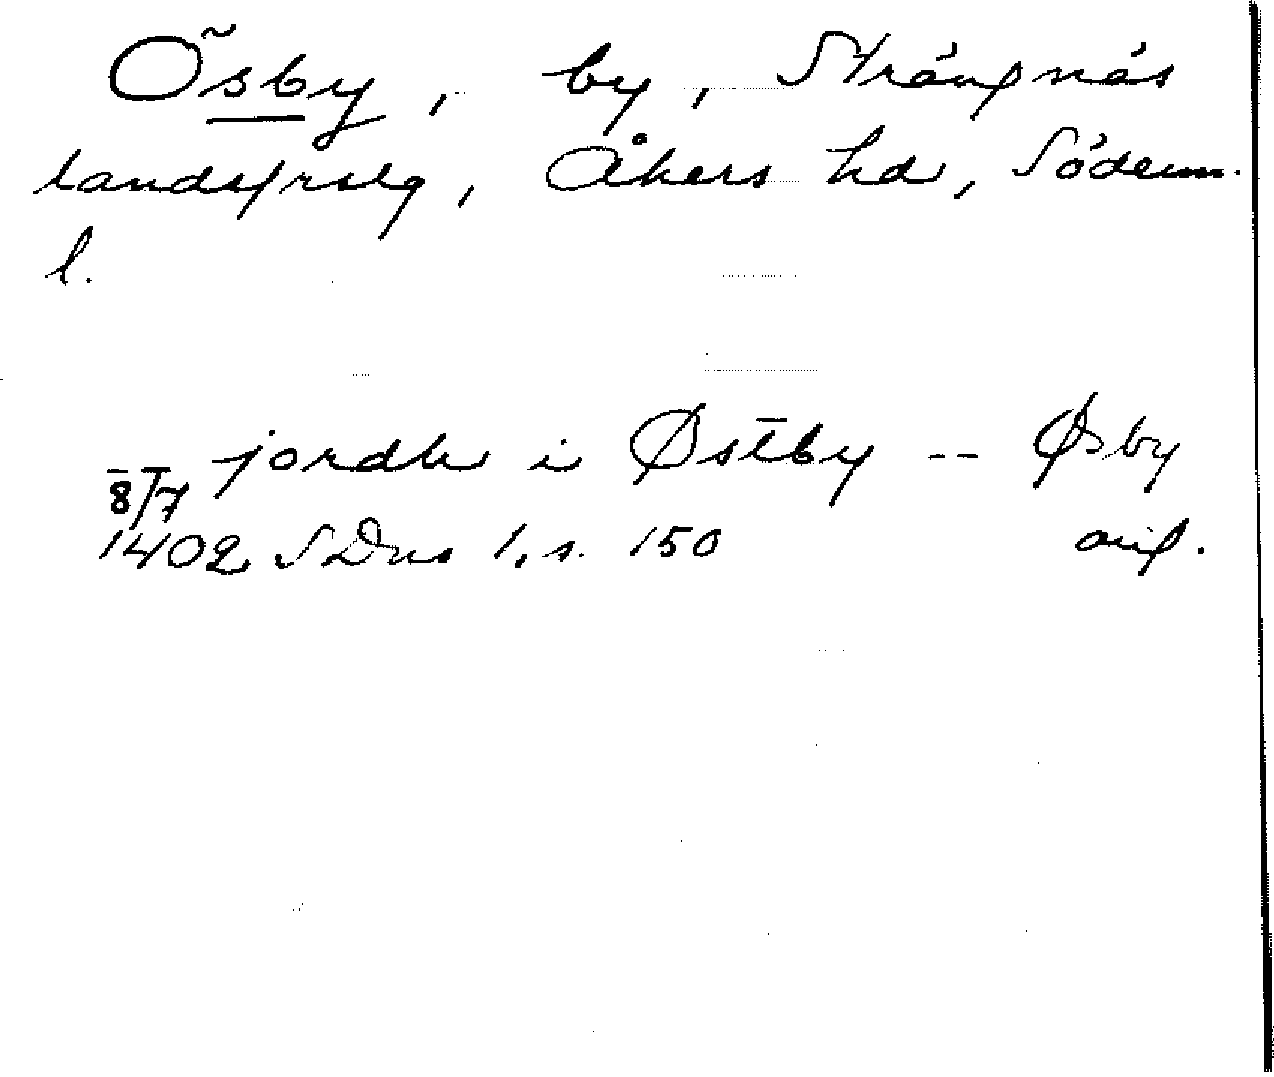 Ösby, by, Strängnäs
landsfrslg, Åkers hd, Söderm.
l.
jordh i Østby -- Øsby
8/7
1402 SDns 1, s. 150 orig.